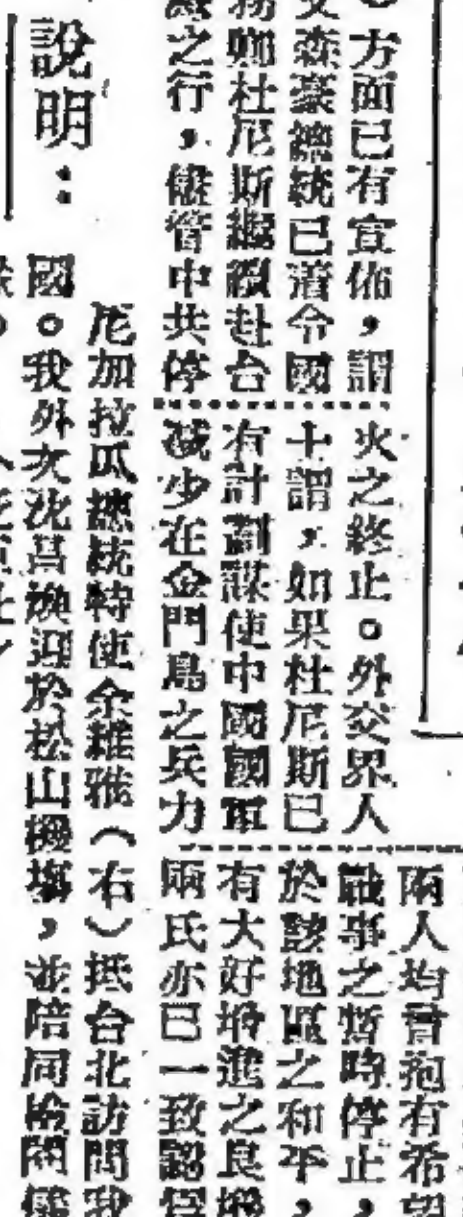 方面已有宣佈，謂
艾森豪總統已着令國
務卿杜尼斯繼續赴台
之行，儘管中共停
火之終止。外交界人
士謂，如果杜尼斯已
有計劃謀使中國國軍
減少在金門島之兵力
兩人均曾抱有希望
戰事之暫時停止，
於該地區之和平，
有大好增進之良機
兩氏亦已一致認爲
說明：
尼加拉瓜總統特使余維雅（右）抵台北訪問我
國。我外次沈昌煥迎於松山機塲，並陪同檢閱儀